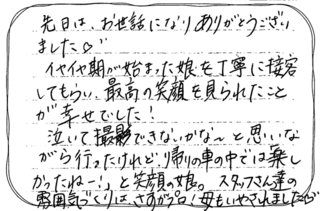 先日は、お世話になりありがとうござい
ました♡
イヤイヤ期が始まった娘を丁寧に接客
してもらい、最高の笑顔を見られたこと
が幸せでした!
泣いて撮影できないかな〜と思いな
がら行ったけれど、帰りの車の中では「楽し
かったねー!」と笑顔の娘。スタッフさん達の
雰囲気づくりは、さすがプロ!母もいやされました